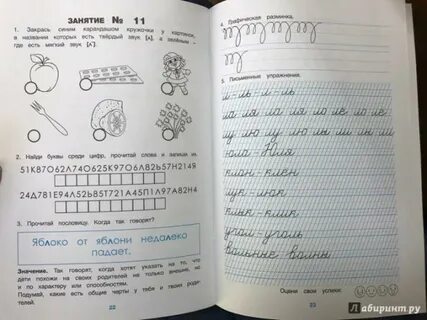 ЗАНЯТИЕ № 11
1. Закрась синим карандашом кружочки у картинок,
в названии которых есть твёрдый звук [л], а зелёным –
где есть мягкий звук [л'].
2. Найди буквы среди цифр, прочитай слова и запиши их.
3. Прочитай пословицу. Когда так говорят?
Яблоко от яблони недалеко
падает.
Значение. Так говорят, когда хотят указать на то, что
дети похожи на своих родителей не только внешне, но
и характером или способностями.
Подумай, какие есть общие черты у тебя и твоих роди-
телей.
22
4. Графическая разминка.
5. Письменные упражнения.
л - ль - л - ль
ла ля ла ля ло лё ло лё
лу лю лу лю лы ли лы ли
юла Юля
клён - клен
лук - люк
клык - клик
угол - уголь
вольные волны
Оцени свои успехи:
23
Лабиринт.ру